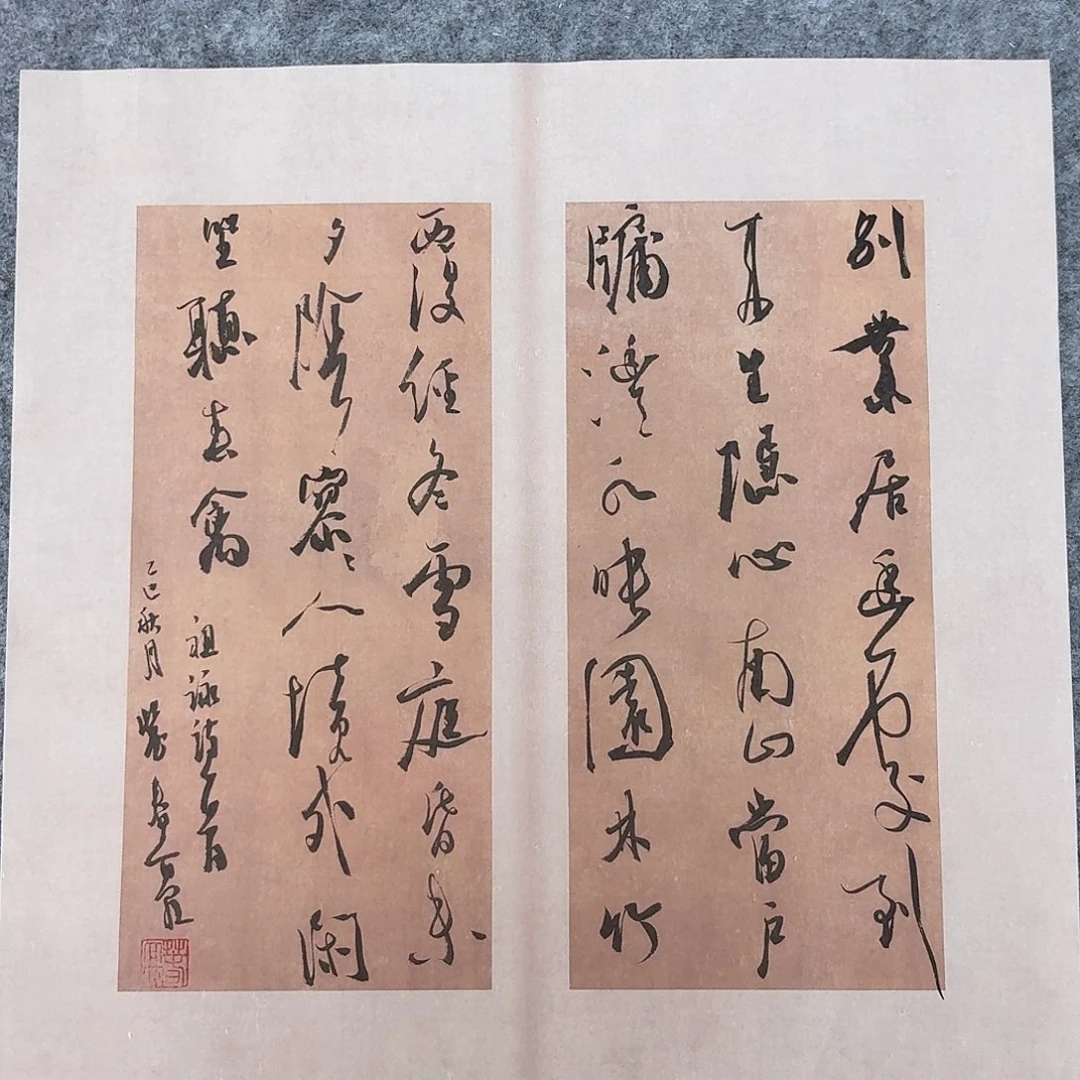 別業居幽處到
来生隱心南山當戶
牖灃水映園林竹
覆經冬雪庭昏未
夕陰寥々人境外閑
坐聽春禽
祖詠詩一首
乙巳秋月